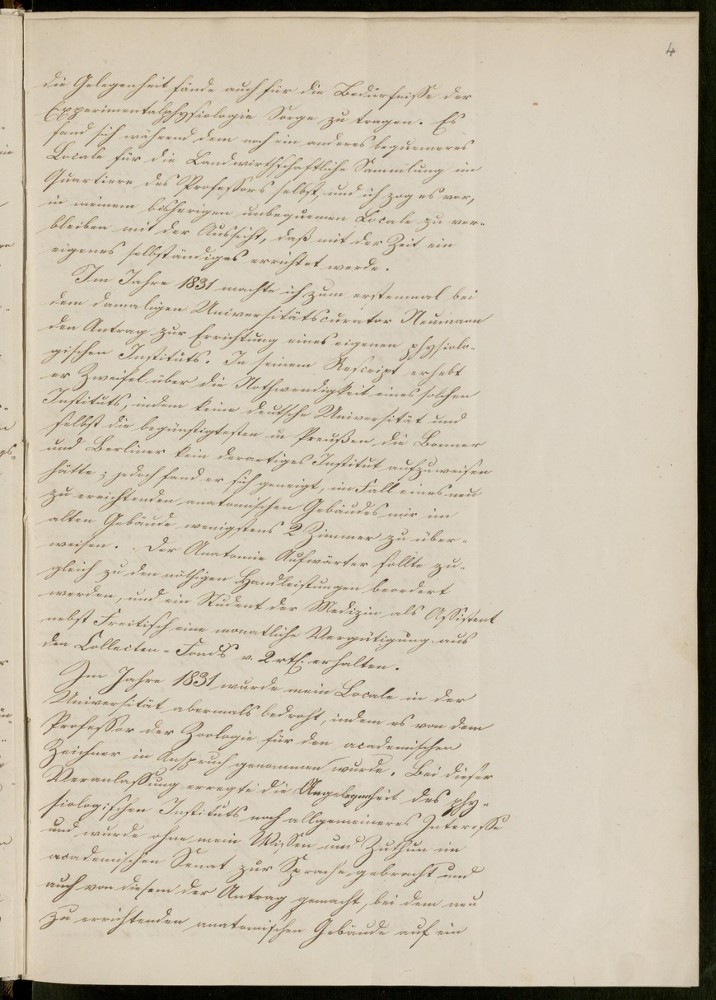 4
die Gelegenheit fände auch für die Bedürfnisse der
Experimentalphysiologie Sorge zu tragen. Es
fand sich während dem noch ein anderes bequemeres
Locale für die Landwirthschaftliche Sammlung im
Quartiere des Professors selbst, und ich zog es vor,
in meinem bisherigen unbequemen Locale zu ver-
bleiben mit der Aussicht, daß mit der Zeit ein
eigenes selbständiges errichtet werde.
Im Jahre 1831 machte ich zum erstenmal bei
dem damaligen Universitätscurator Neumann
den Antrag zur Errichtung eines eigenen physiolo-
gischen Instituts. In seinem Rescript erhebt
er Zweifel über die Nothwendigkeit eines solchen
Instituts, indem keine deutsche Universität und
selbst die begünstigtesten in Preußen, die Bonner
und Berliner kein derartiges Institut aufzuweisen
hätte; jedoch fand er sich geneigt, im Fall eines neu
zu errichtenden anatomischen Gebäudes mir im
alten Gebäude wenigstens 2 Zimmer zu über-
weisen. Der Anatomie Aufwärter sollte zu-
gleich zu den nöthigen Handleistungen beordert
werden, und ein Student der Medizin als Assistent
nebst Freitisch eine monatliche Vergütigung aus
den Collecten-Fonds v. 2 rth. erhalten.
Im Jahre 1831 wurde mein Locale in der
Universität abermals bedroht, indem es von dem
Professor der Zoologie für den academischen
Zeichner in Anspruch genommen wurde. Bei dieser
Veranlassung erregte die Angelegenheit des phy-
siologischen Instituts noch allgemeineres Interesse
und wurde ohne mein Wissen und Zuthun im
academischen Senat zur Sprache gebracht und
auch von diesem der Antrag gemacht, bei dem neu
zu errichtenden anatomischen Gebäude auf ein